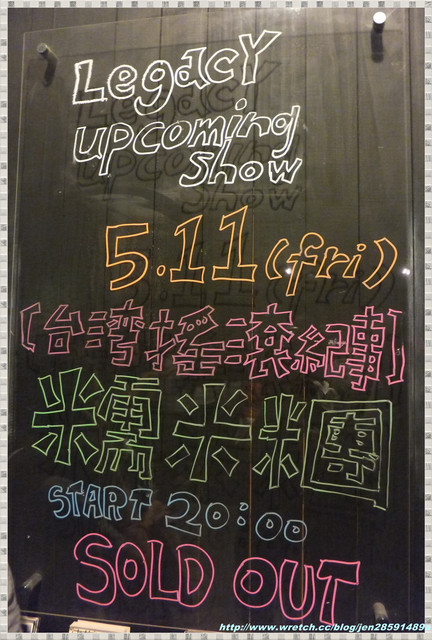 Legacy
upcoming
show
5.11(fri)
[台湾搖滾紀事]
糯米糰
START 20:00
SOLD OUT
http://www.wretch.cc/blog/jen28591489